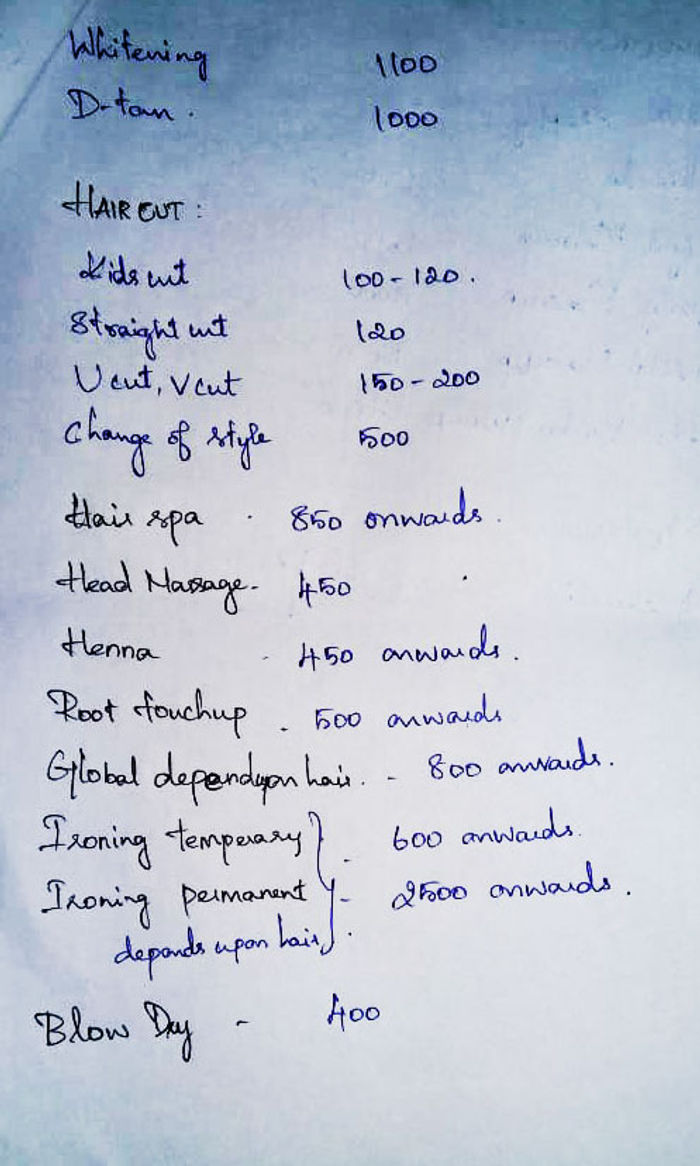 Whitening 1100
D-tan. 1000
HAIR CUT:
Kids cut 100-120.
Straight cut 120
U cut, V cut 150-200
Change of style 500
Hair spa - 850 onwards.
Head Massage- 450
Henna - 450 onwards.
Root touchup - 500 onwards
Global dependupon hair. - 800 onwards.
Ironing temperary - 600 onwards.
Ironing permanent - 2500 onwards.
depends upon hair.
Blow Dry - 400